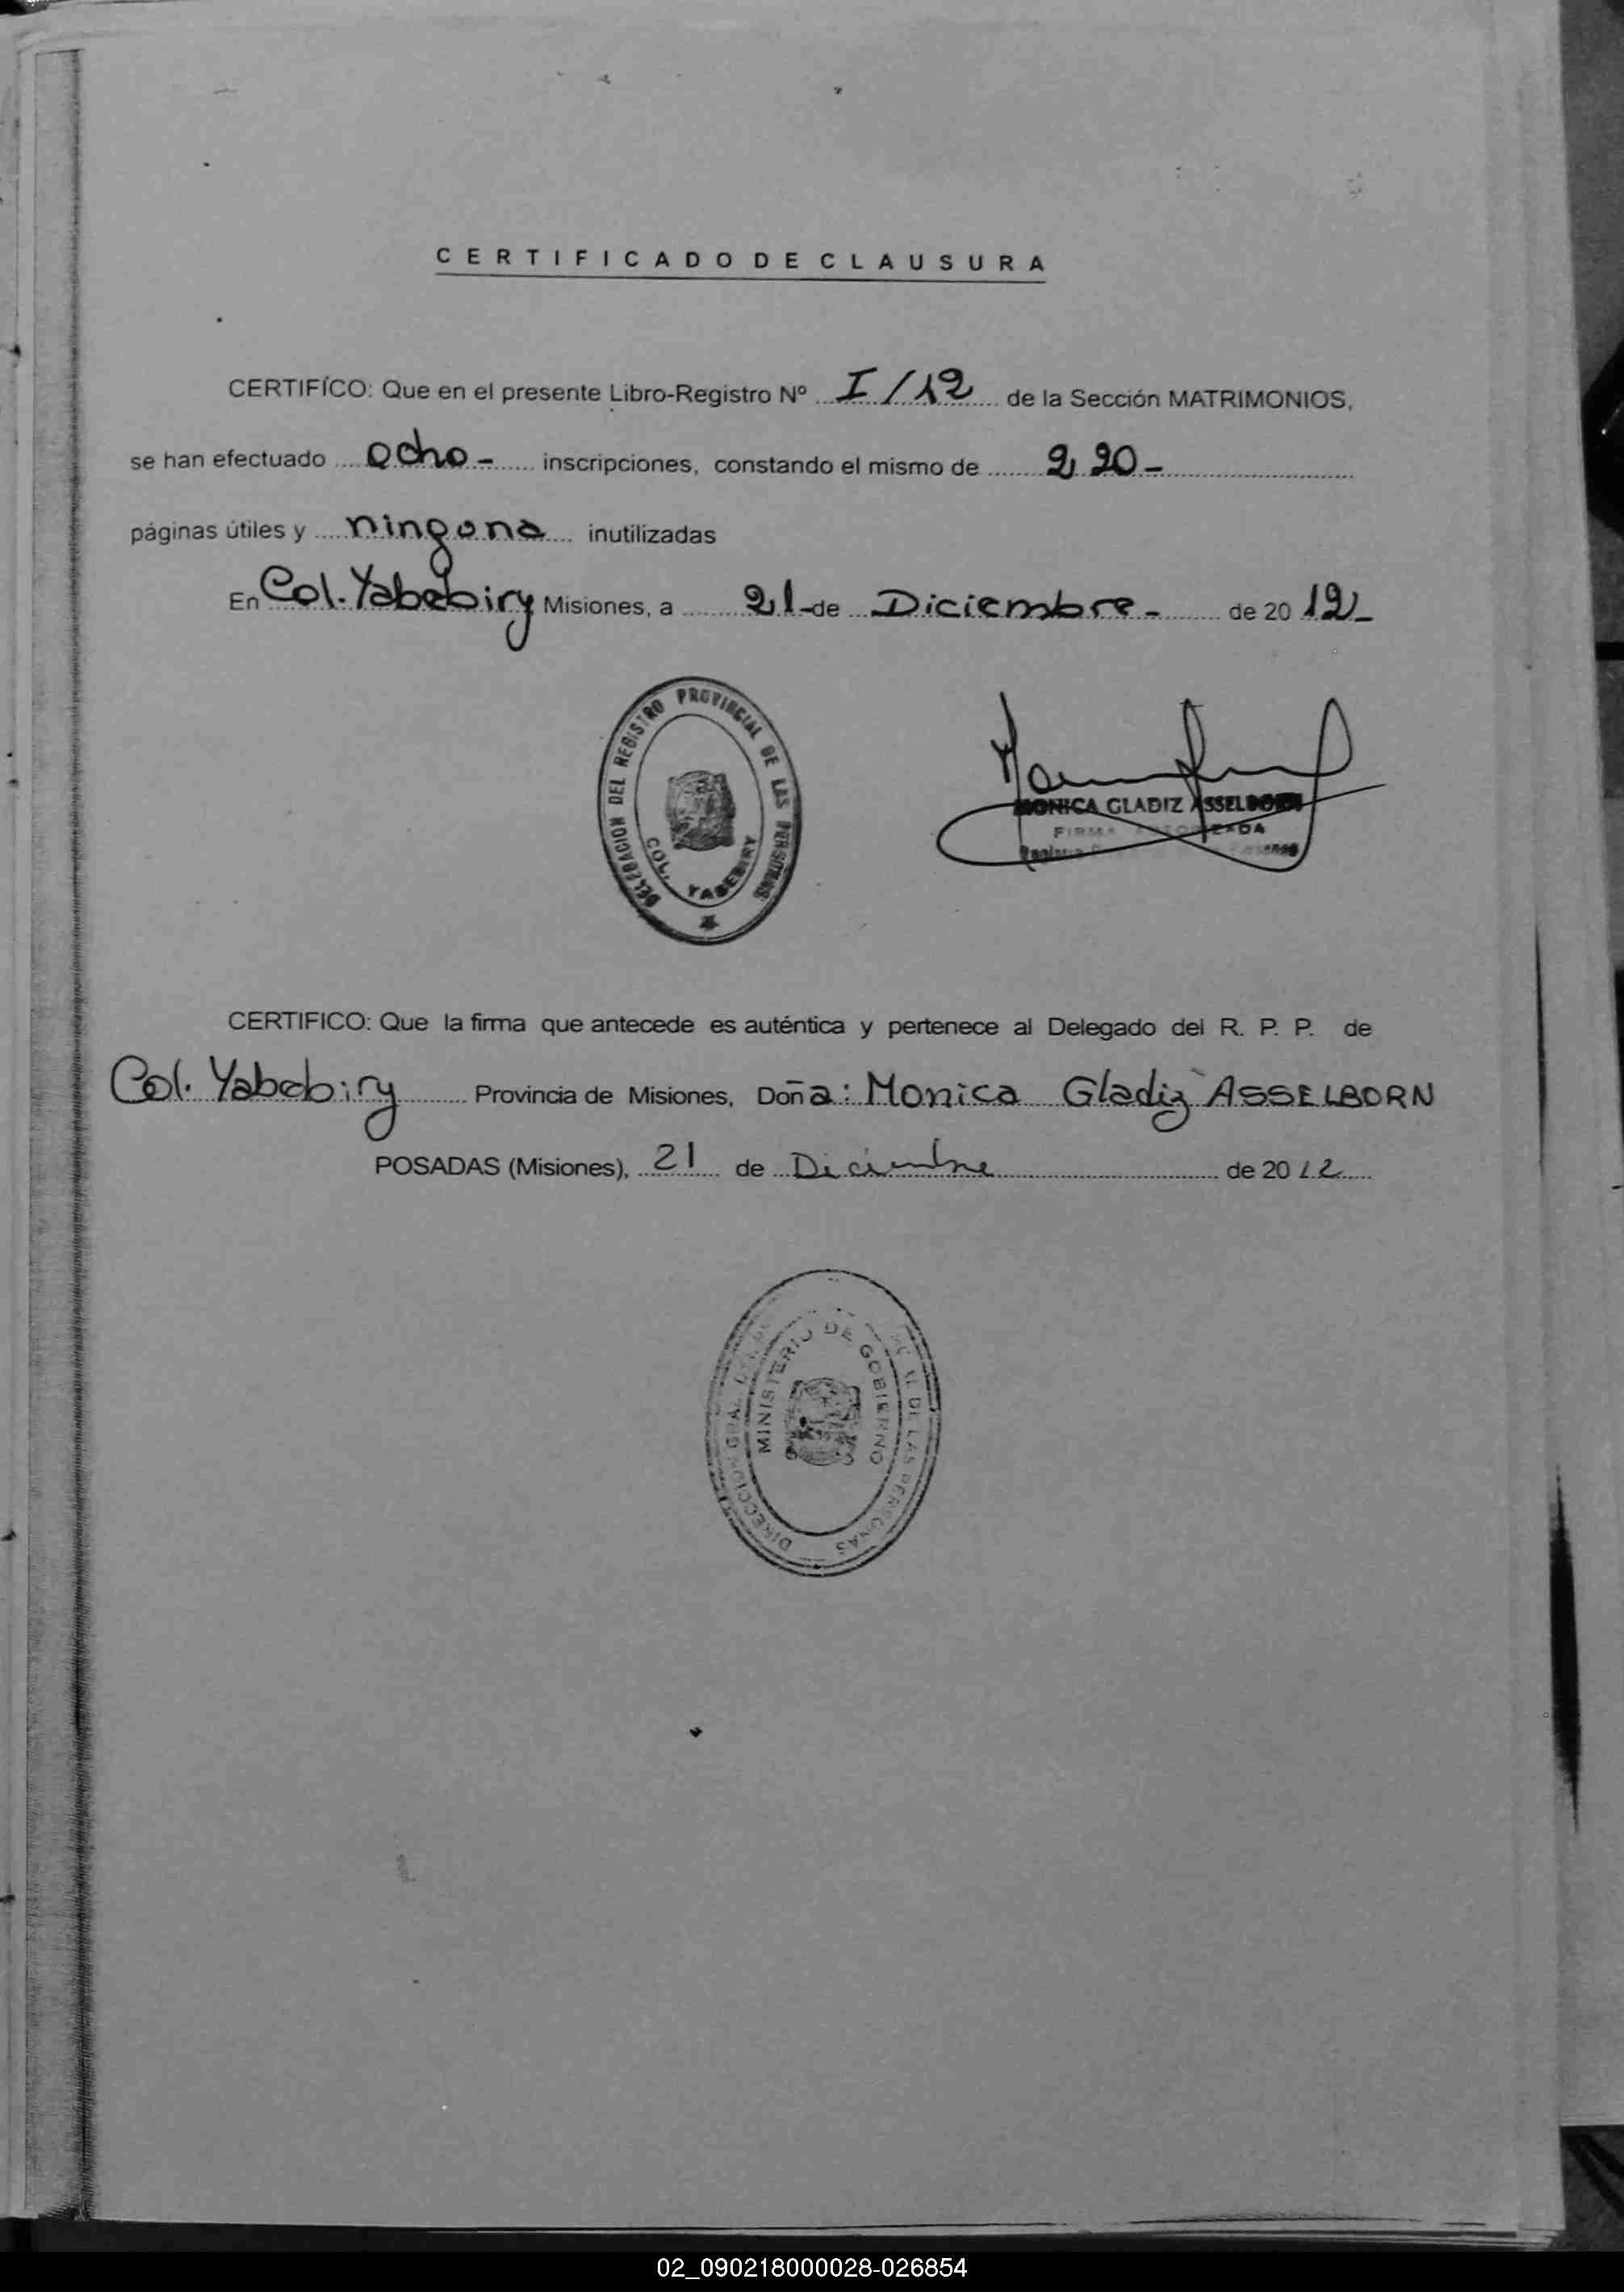 CERTIFICADO DE CLAUSURA
CERTIFÍCO: Que en el presente Libro-Registro Nº I/12 de la Sección MATRIMONIOS,
se han efectuado ocho- inscripciones, constando el mismo de 220-
páginas útiles y ningona inutilizadas
En Col. Yabebiry Misiones, a 21-de Diciembre- de 2012-
DELEGACION DEL REGISTRO PROVINCIAL DE LAS PERSONAS
COL. YABEBIRY
MONICA GLADIZ ASSELBORN
FIRMA AUTORIZADA
CERTIFICO: Que la firma que antecede es auténtica y pertenece al Delegado del R. P. P. de
Col. Yabebiry Provincia de Misiones, Doña: Monica Gladiz ASSELBORN
POSADAS (Misiones), 21 de Diciembre de 2012
DIRECCION GRAL. DE LAS PERSONAS
MINISTERIO DE GOBIERNO
02_090218000028-026854